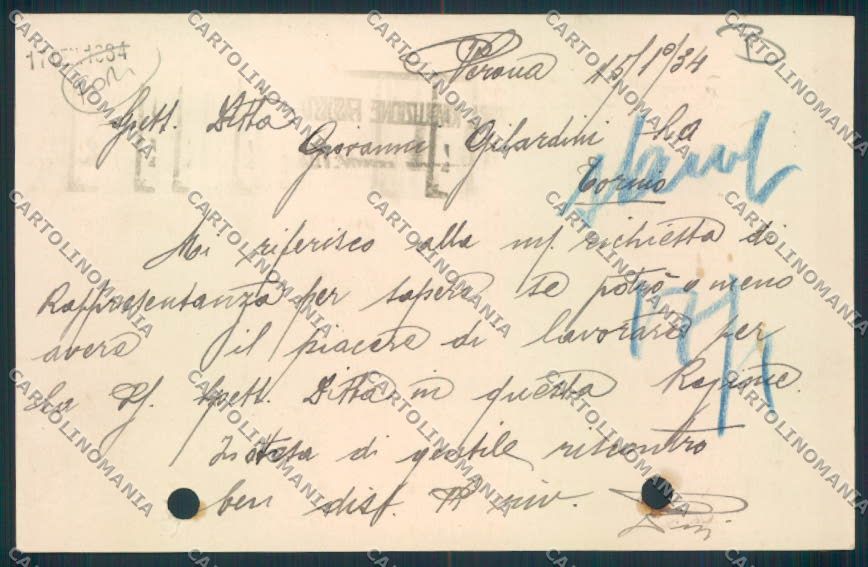 Verona 15/1°/34
Spett. Ditta
Giovanni Gilardini
Torino
Mi riferisco alla m/ richiesta di
Rappresentanza per sapere se potrò o meno
avere il piacere di lavorare per
la Spett. Ditta in questa Regione.
In attesa di gentile riscontro
ben dist.
17/1
CARTOLINOMANIA